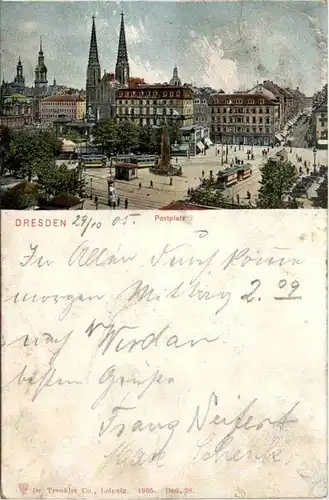 DRESDEN 29/10 05. Postplatz
In Allen durch komme
morgen Mittag 2.09
nach Werdau
besten Grüße
Franz Neifert
Max Schenk
Dr. Trenkler Co., Leipzig. 1905. Dsd. 28.